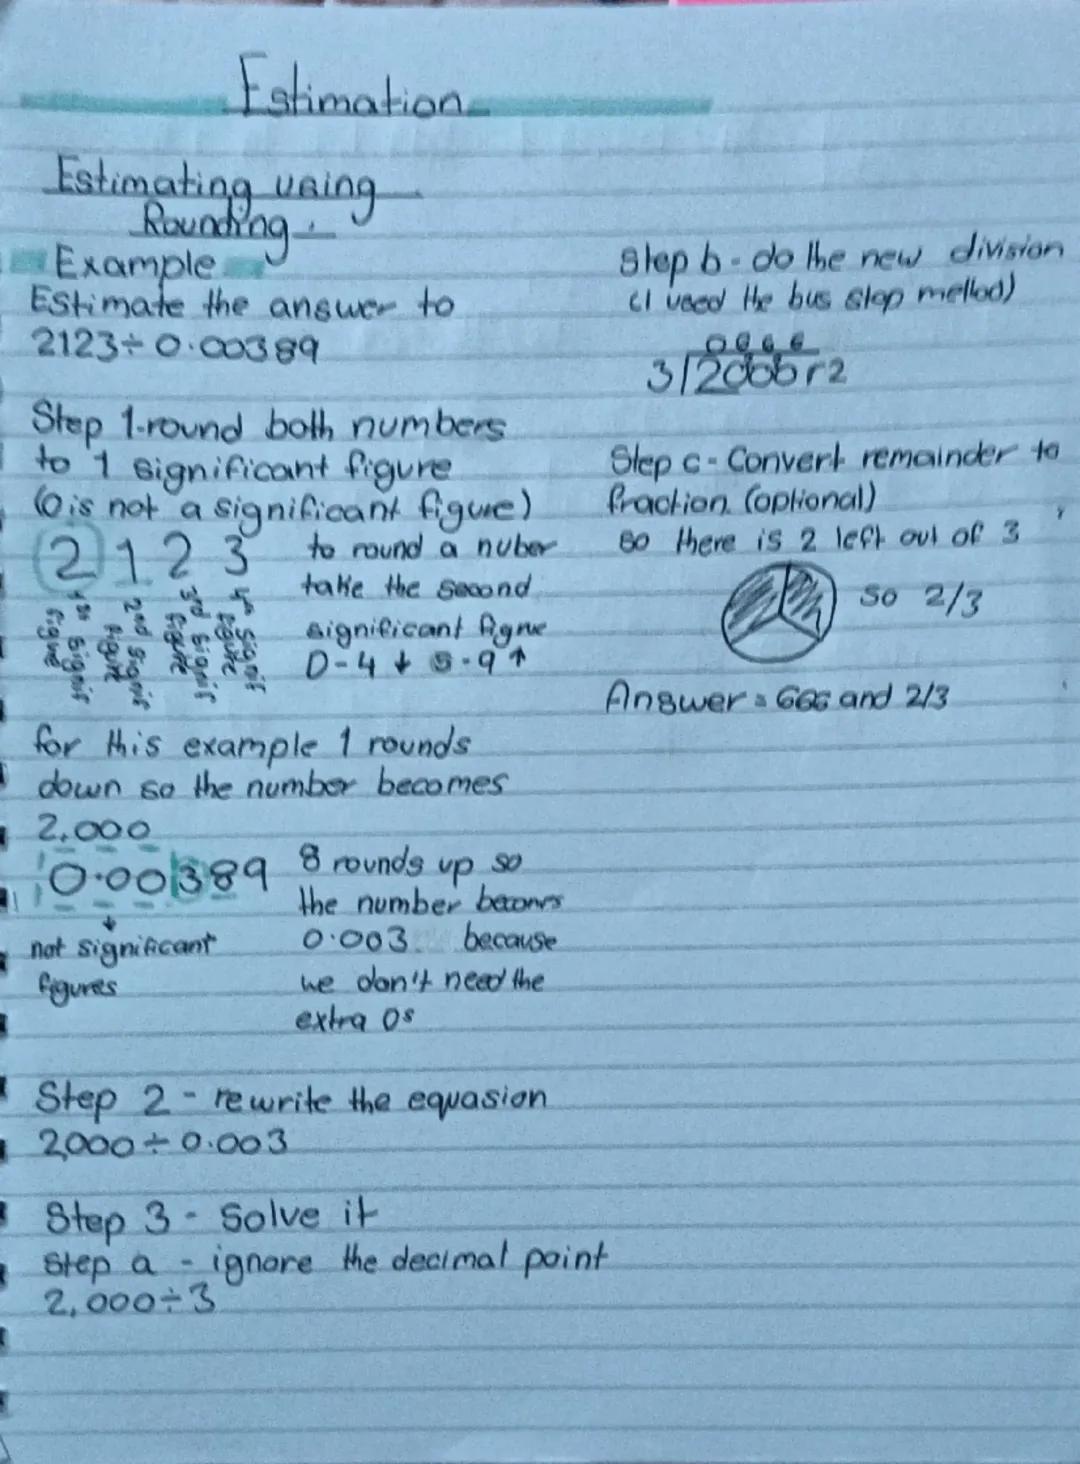 Estimation
Estimating using
Rounding.
Example
Estimate the answer to
2123÷0.00389
Step 1-round both numbers
to 1 significant figure
(0 is not a significant figure)
2 1 2 3
1st signif figure
2nd signif figure
3rd signif figure
4th signif figure
to round a nuber
take the second
significant figrue
0-4 ↓ 5-9 ↑
for this example 1 rounds
down so the number becomes
2,000
0.00389
not significant
figures
8 rounds up so
the number becomes
0.003 because
we don't need the
extra 0s
Step 2 - rewrite the equasion
2,000÷0.003
Step 3 - Solve it
Step a - ignore the decimal point
2,000÷3
Step b - do the new division
(I used the bus stop method)
0 6 6 6
3 2000 r2
Step c - Convert remainder to
fraction (optional)
so there is 2 left out of 3
so 2/3
Answer = 666 and 2/3